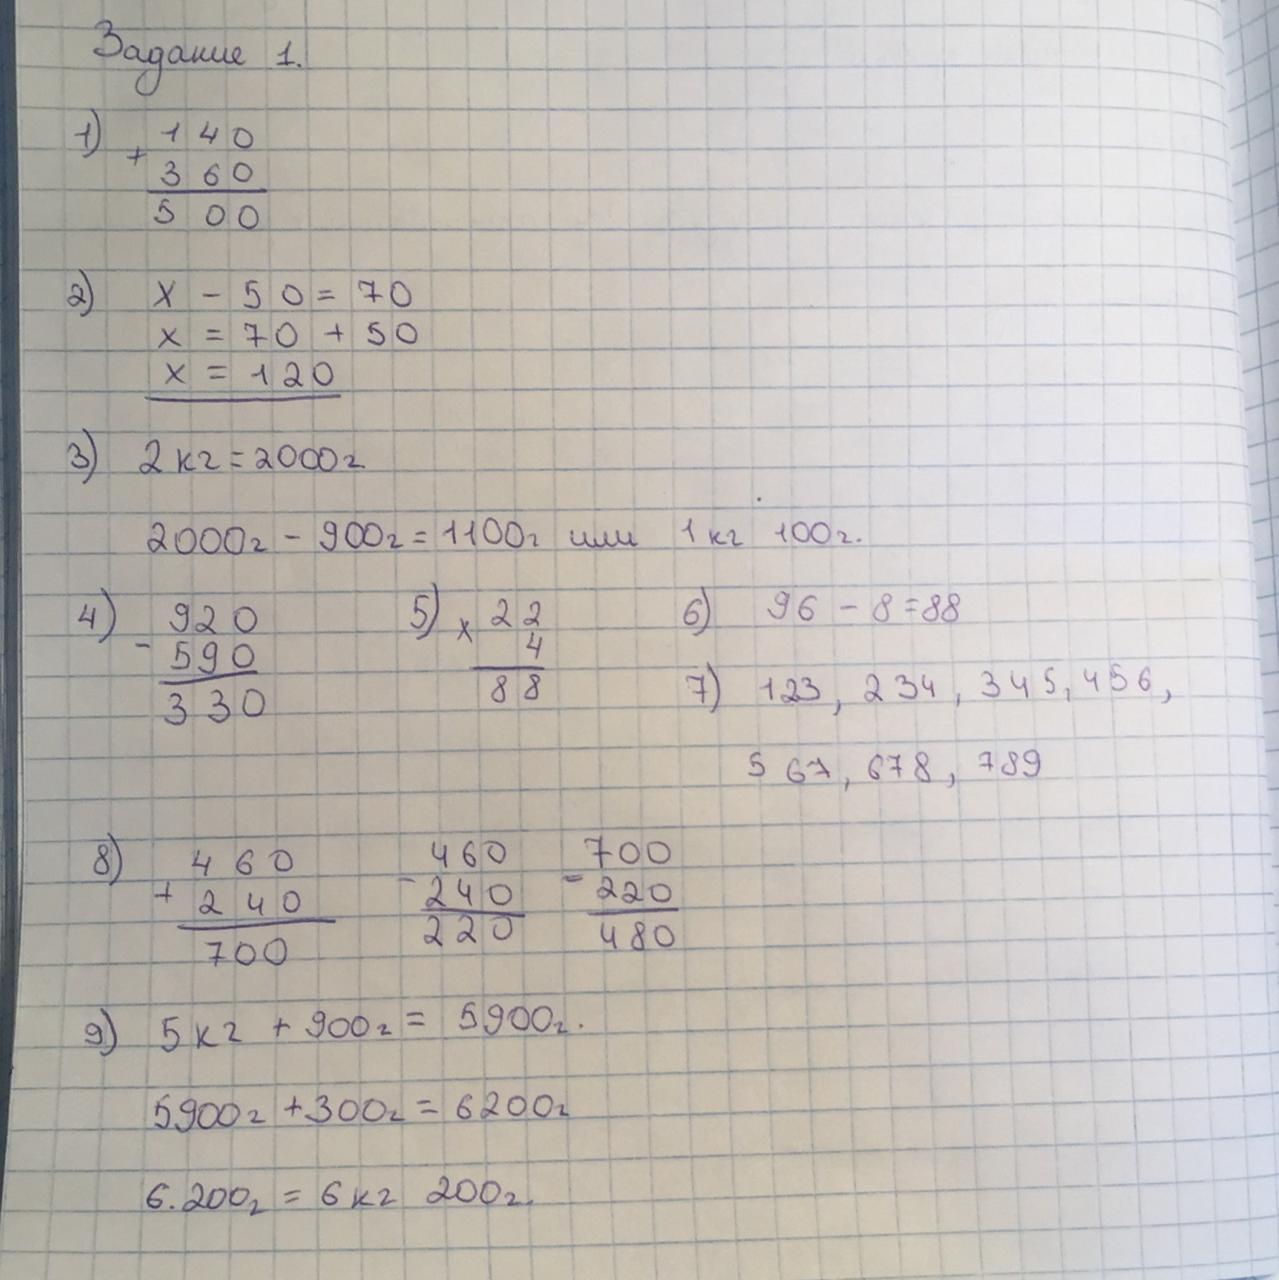 Задание 1.
1) + 140
360
500
2) x - 50 = 70
x = 70 + 50
x = 120
3) 2кг = 2000г
2000г - 900г = 1100г или 1кг 100г.
4) - 920
590
330
5) x 22
4
88
6) 96 - 8 = 88
7) 123, 234, 345, 456,
567, 678, 789
8) + 460
240
700
- 460
240
220
- 700
220
480
9) 5кг + 900г = 5900г.
5900г + 300г = 6200г
6.200г = 6кг 200г.